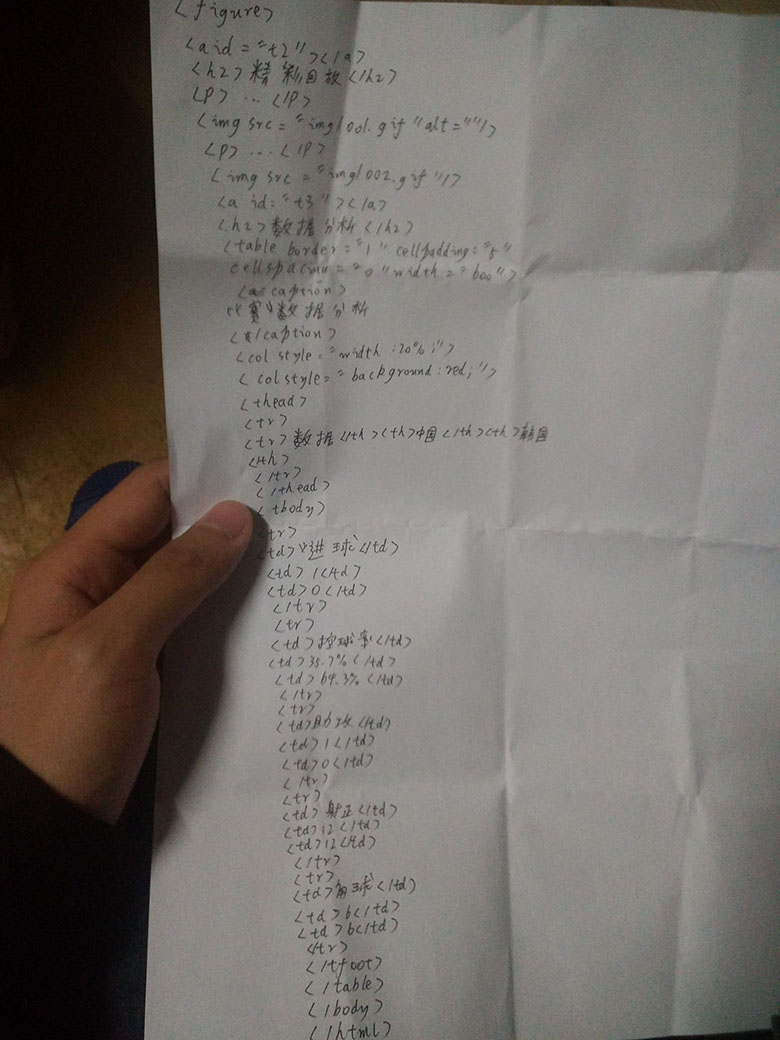 <figure>
<a id="t2"></a>
<h2>精彩回放</h2>
<p>...</p>
<img src="img/001.gif"alt=""/>
<p>...</p>
<img src="img/002.gif"/>
<a id:"t3"></a>
<h2>数据分析</h2>
<table border="1" cellpadding="5"
cellspacing="0"width="600">
<caption>
比赛数据分析
</caption>
<col style="width:20%;"/>
<col style="background:red;"/>
<thead>
<tr>
<tr>数据</th><th>中国</th><th>韩国
</th>
</tr>
</thead>
<tbody>
<tr>
<td>进球</td>
<td>1</td>
<td>0</td>
</tr>
<tr>
<td>控球率</td>
<td>35.7%</td>
<td>64.3%</td>
</tr>
<tr>
<td>助攻</td>
<td>1</td>
<td>0</td>
</tr>
<tr>
<td>射正</td>
<td>12</td>
<td>12</td>
</tr>
<tr>
<td>角球</td>
<td>6</td>
<td>6</td>
</tr>
</tfoot>
</table>
</body>
</html>